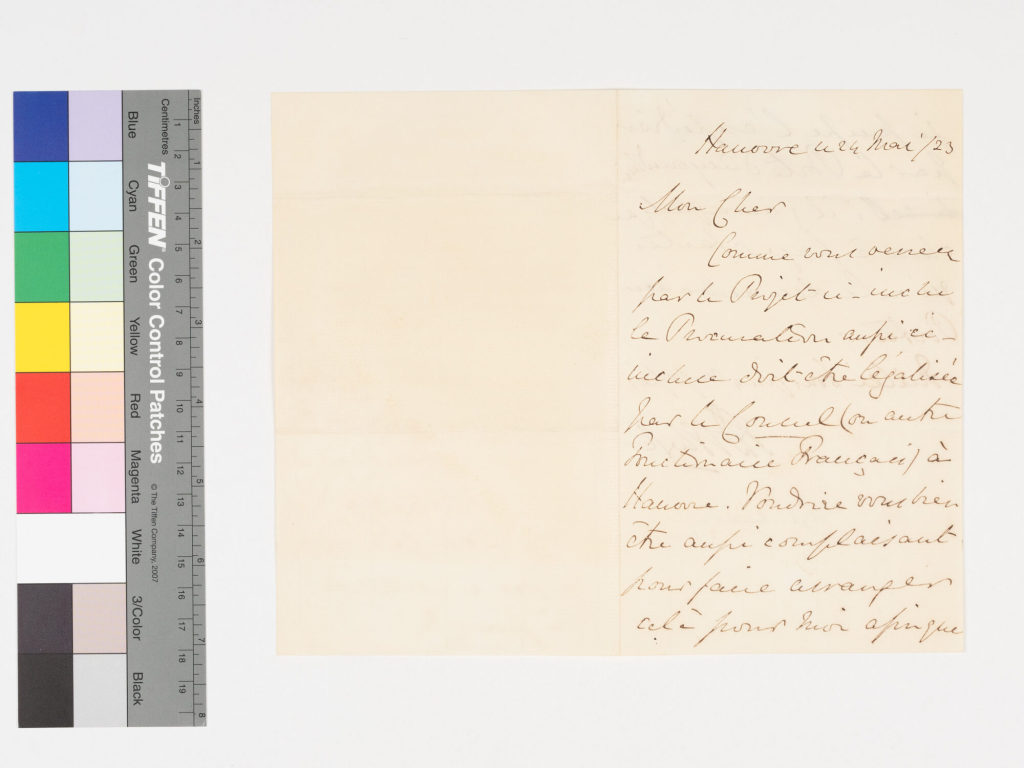 Inches
Centimetres
1 2 3 4 5 6 7 8 9 10 11 12 13 14 15 16 17 18 19
1 2 3 4 5 6 7 8
Blue
Cyan
Green
Yellow
Red
Magenta
White
3/Color
Black
TIFFEN® Color Control Patches
© The Tiffen Company, 2007
Hanovre 24 Mai /23
Mon Cher
Comme vous verrez
par le Projet ci-inclu
la Procuration aussi ci-
incluse doit être légalisée
par le Consul (ou autre
Fonctionaire Français) à
Hanovre. Voudrire vous bien
être aussi complaisant
pour faire arranger
celà pour moi afinque